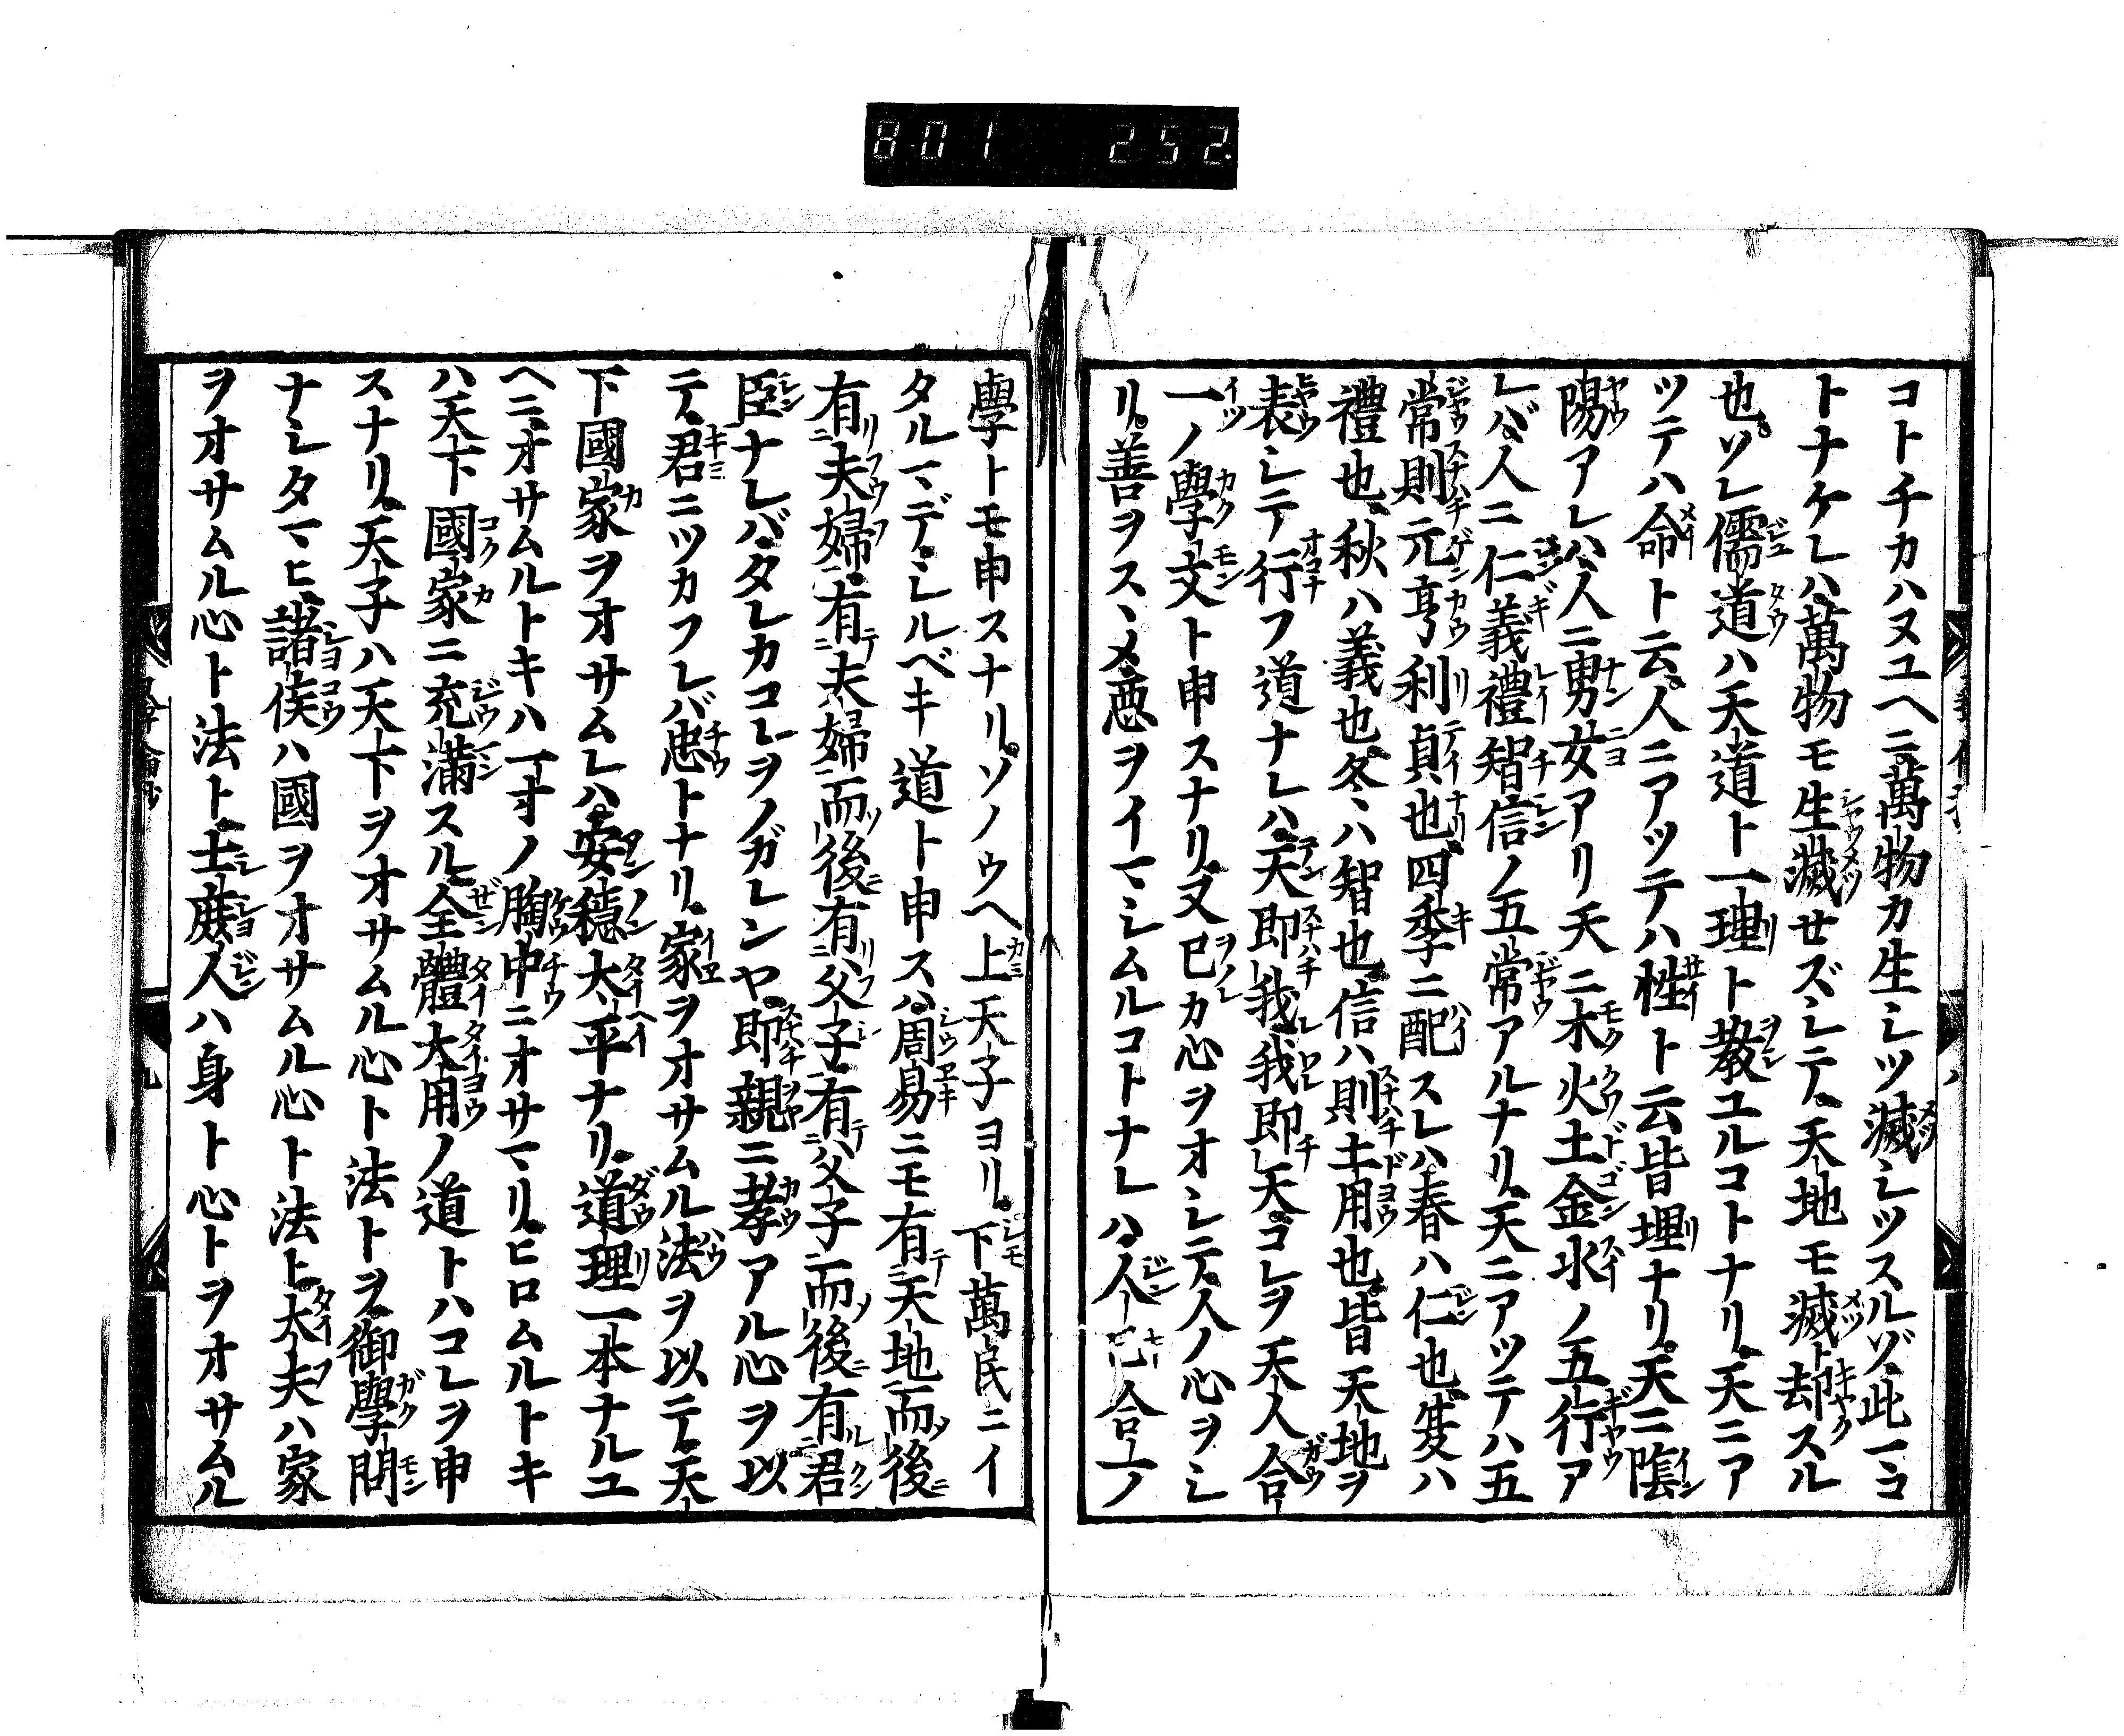 801 252
コトチカハヌユヘニ萬物カ生シツ滅シツスルゾ此一コ
トナケレハ萬物モ生滅せズシテ天地モ滅却スル
也ソレ儒道ハ天道ト一理ト教ユルコトナリ天ニア
ツテハ命ト云人ニアツテハ性ト云皆理ナリ天ニ陰
陽アレハ人ニ男女アリ天ニ木火土金水ノ五行ア
レバ人ニ仁義禮智信ノ五常アルナリ天ニアツテハ五
常則元亨利貞也四季ニ配スレハ春ハ仁也夏ハ
禮也秋ハ義也冬ハ智也信ハ則土用也皆天地ヲ
表シテ行フ道ナレハ天即我我即天コレヲ天人合
一ノ學文ト申スナリ又已カ心ヲオシテ人ノ心ヲシ
リ善ヲスヽメ惡ヲイマシムルコトナレハ人已合一ノ
學トモ申スナリソノウヘ上天子ヨリ下萬民ニイ
タルマデシルベキ道ト申スハ周易ニモ有天地而後
有夫婦有夫婦而後有父子有父子而後有君
臣ナレバタレカコレヲノガレンヤ即親ニ孝アル心ヲ以
テ君ニツカフレバ忠トナリ家ヲオサムル法ヲ以テ天
下國家ヲオサムレハ安穩太平ナリ道理一本ナルユ
ヘニオサムルトキハ一寸ノ胸中ニオサマリヒロムルトキ
ハ天下國家ニ充滿スル全體大用ノ道トハコレヲ申
スナリ天子ハ天下ヲオサムル心ト法トヲ御學問
ナシタマヒ諸侯ハ國ヲオサムル心ト法ト大夫ハ家
ヲオサムル心ト法ト士庶人ハ身ト心トヲオサムル